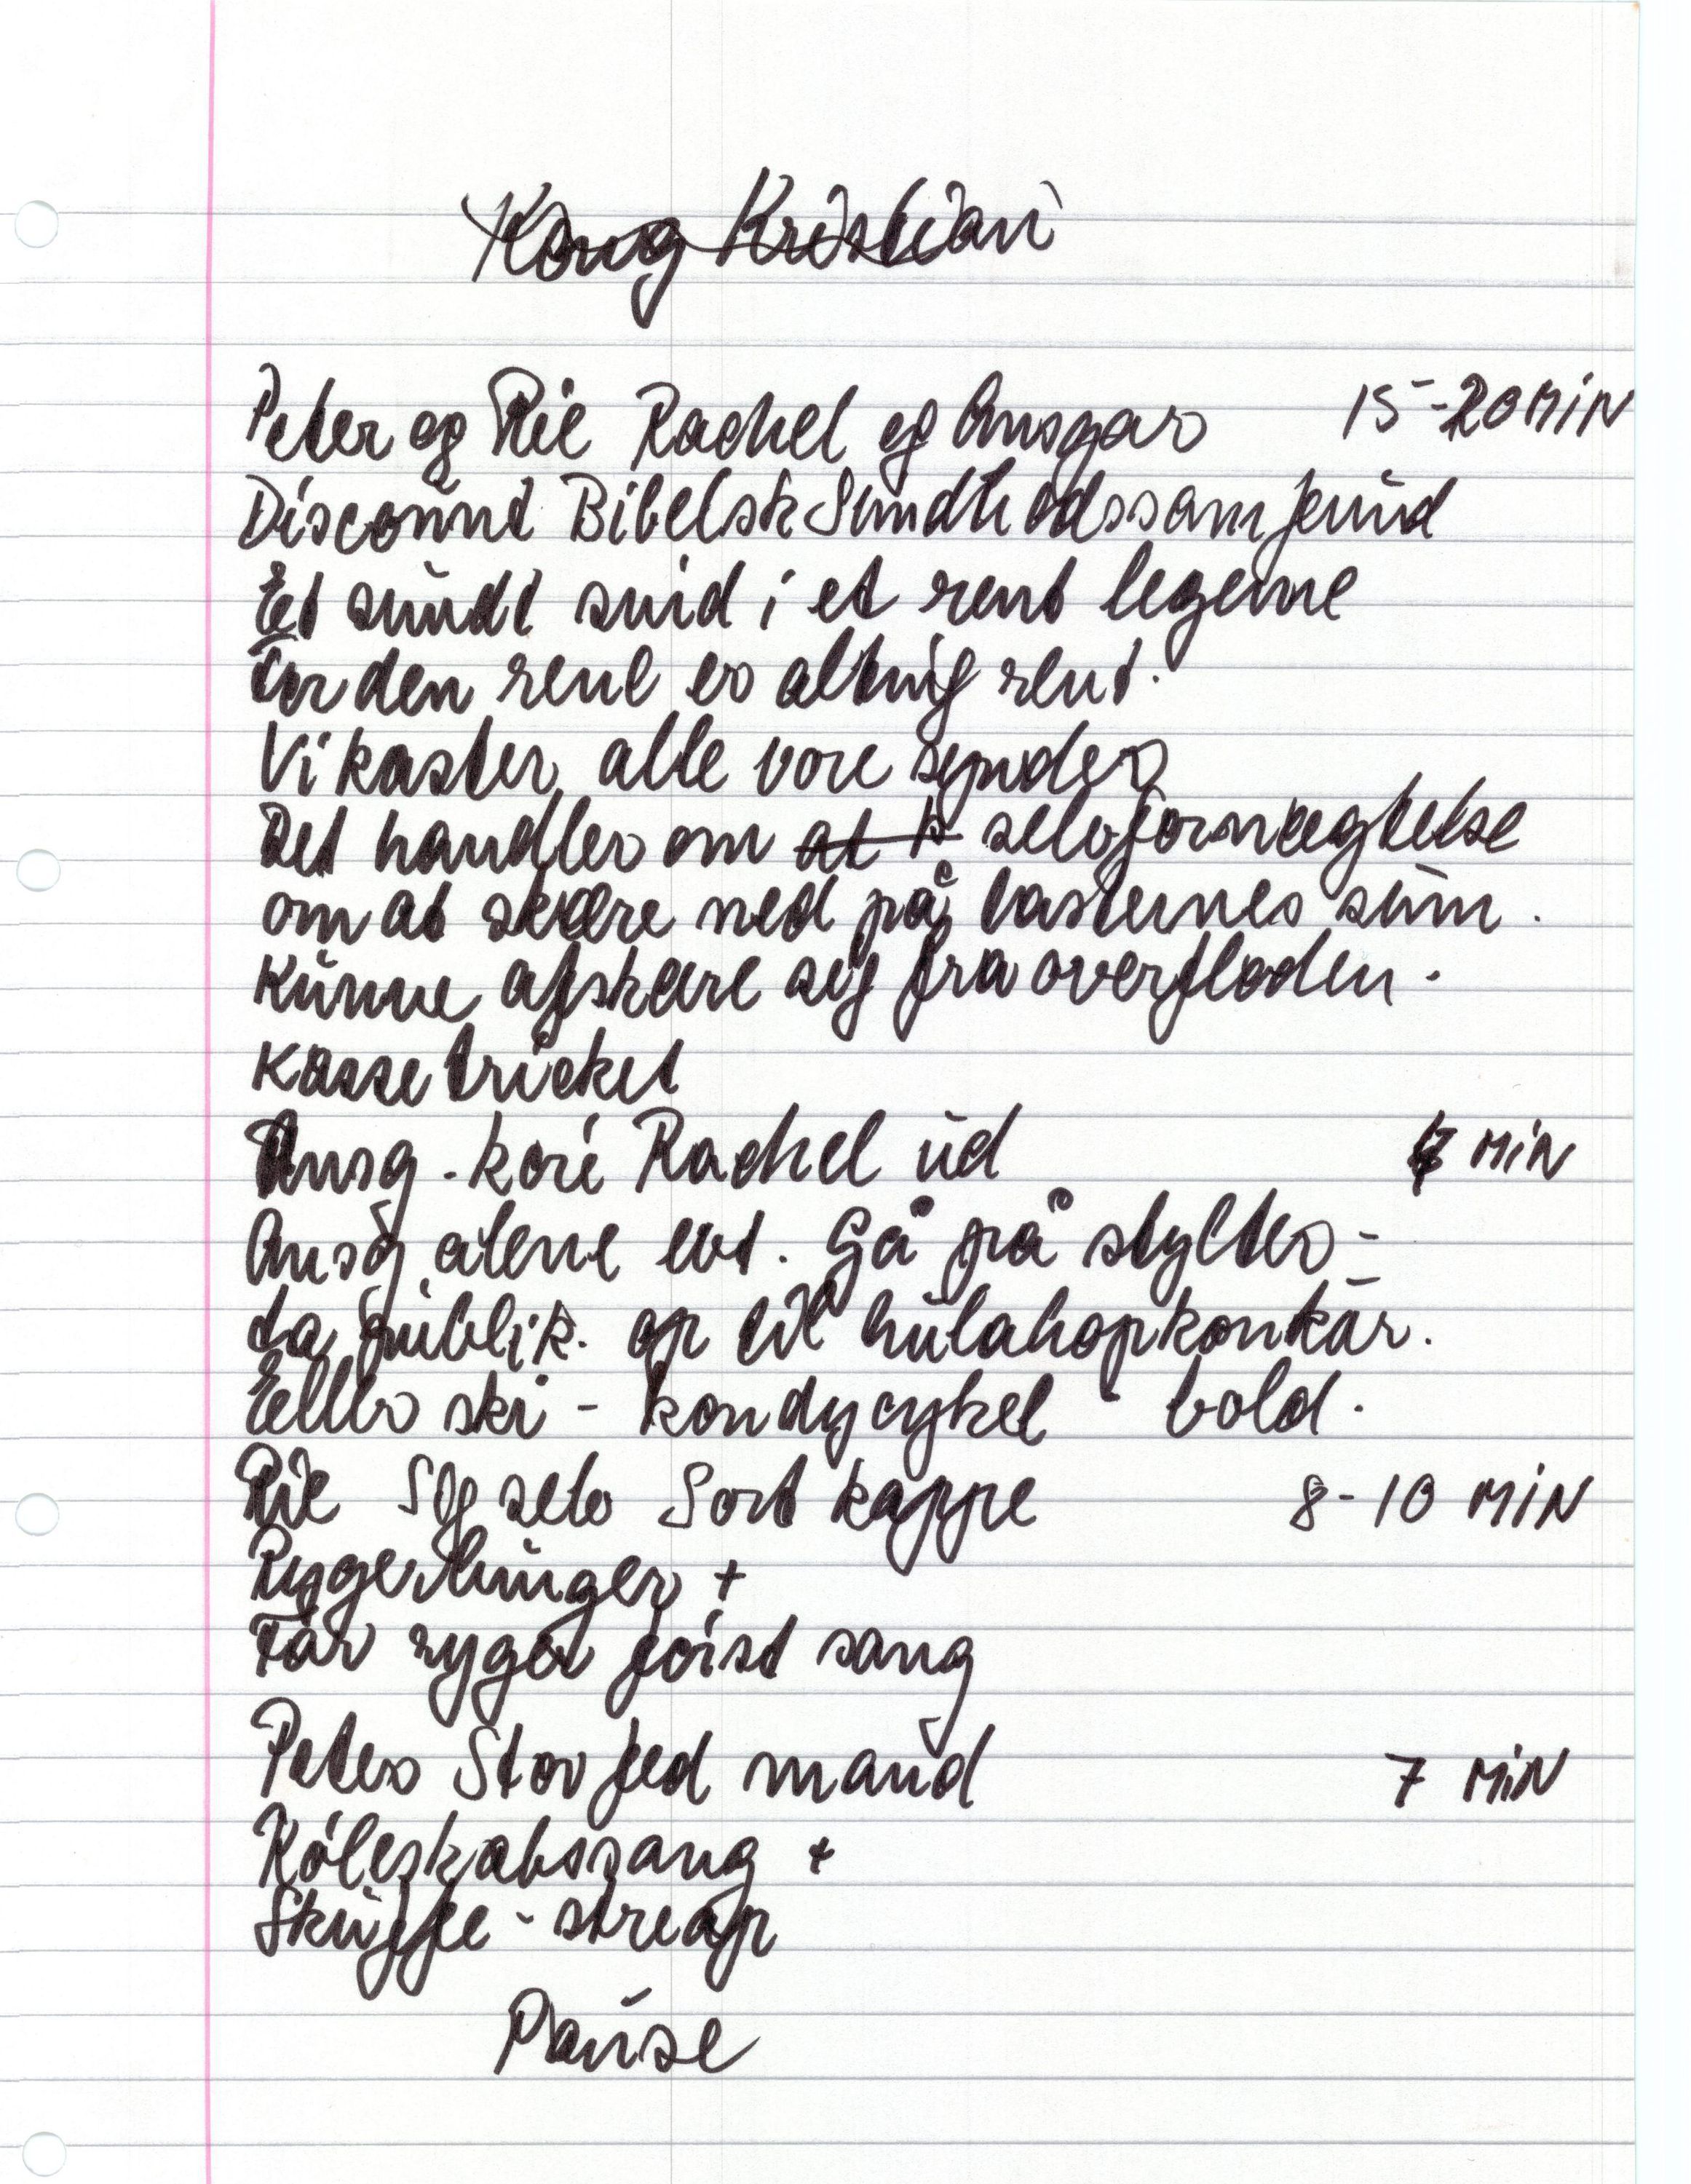 Kong Kristian
Peter og Rie Rachel og Ansgar 15-20 MIN
Discount Bibelsk Sundhedssamfund
Et sundt sind i et rent legeme
For den rene er alting rent.
Vi kaster alle vore synder
Det handler om at selvfornægtelse
om at skære ned på lasternes sum.
Kunne afskære sig fra overfloden.
Kassetricket
Ansg. - Rachel ud MIN
Ansg alene evt. Gå på stylter -
ta publik. op til hulahopkonkur.
Eller ski - kondycykel - bold.
Rie Sig selv Sort kappe 8-10 MIN
Rygerlunger +
Får ryger sang
Peter Stor fed mand 7 MIN
Köleskabssang +
Skuffe - streap
Pause